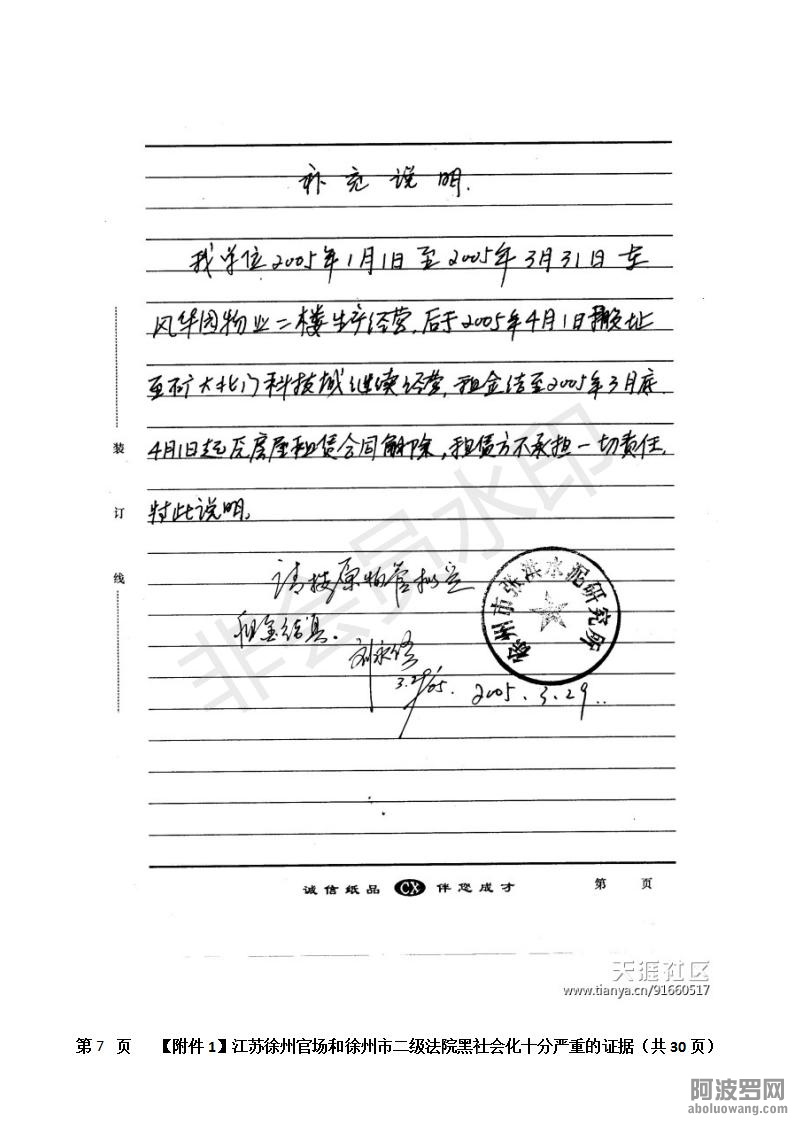 补充说明.
我单位2005年1月1日至2005年3月31日在
风华园物业二楼生产经营,后于2005年4月1日搬址
至矿大北门科技城继续经营,租金结至2005年3月底.
4月1日起瓦房屋租赁合同解除,租赁方不承担一切责任.
特此说明.
请按原物管拟定
租金结算.
刘永修
3.29/05.
徐州市张洪水泥研究所
2005.3.29..
装
订
线
非会员水印
诚信纸品 CX 伴您成才 第 页
天涯社区
www.tianya.cn/91660517
第 7 页 【附件 1】江苏徐州官场和徐州市二级法院黑社会化十分严重的证据（共 30 页）
阿波罗网
aboluowang.com